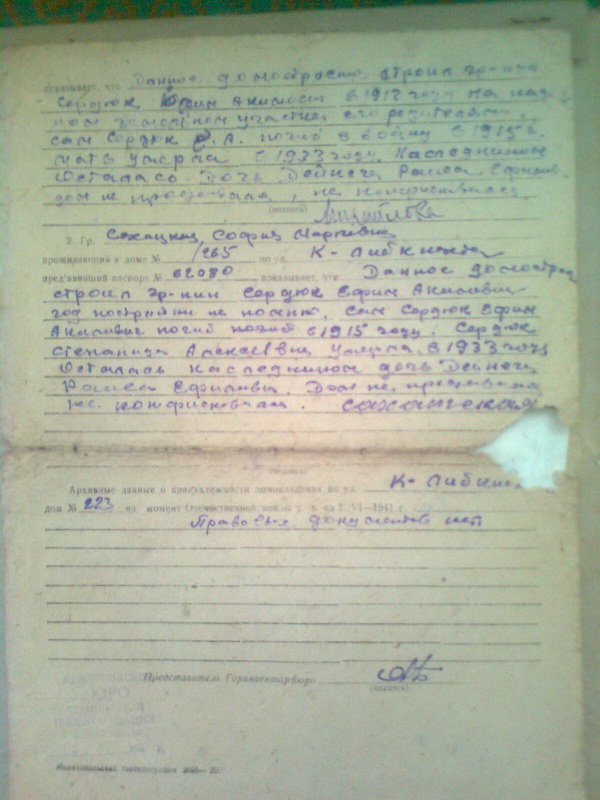 показывает, что Данное домостроение строил гр-нин
Сердюк Ефим Акимович в 1912 году на
ном земельном участке его родителями.
сам Сердюк Е. А. погиб в войну в 1915 г.
мать умерла в 1933 году. Наследником
Осталась дочь Дейнега Раиса Ефимов.
дом не продавала, не конфисковался
(подпись) Михайлова
2. Гр. София Марковна
проживающая в доме № 265 по ул. К-Либкнехта
предъявивший паспорт № 62080 показывает, что Данное домострое
строил гр-нин Сердюк Ефим Акимович
год постройки не помню. Сам Сердюк Ефим
Акимович погиб погиб в 1915 году. Сердюк
Степанида Алексеевна умерла в 1933 году
Осталась наследником дочь Дейнега
Раиса Ефимовна. Дом не продавала
не конфисковали.
(подпись)
Архивные данные о принадлежности домовладения по ул. К-Либкнехта
дом № 223 на момент Отечественной войны т. е. на 22/VI—1941 г.
Правовых документов нет
Представитель Горинвентарбюро
(подпись)